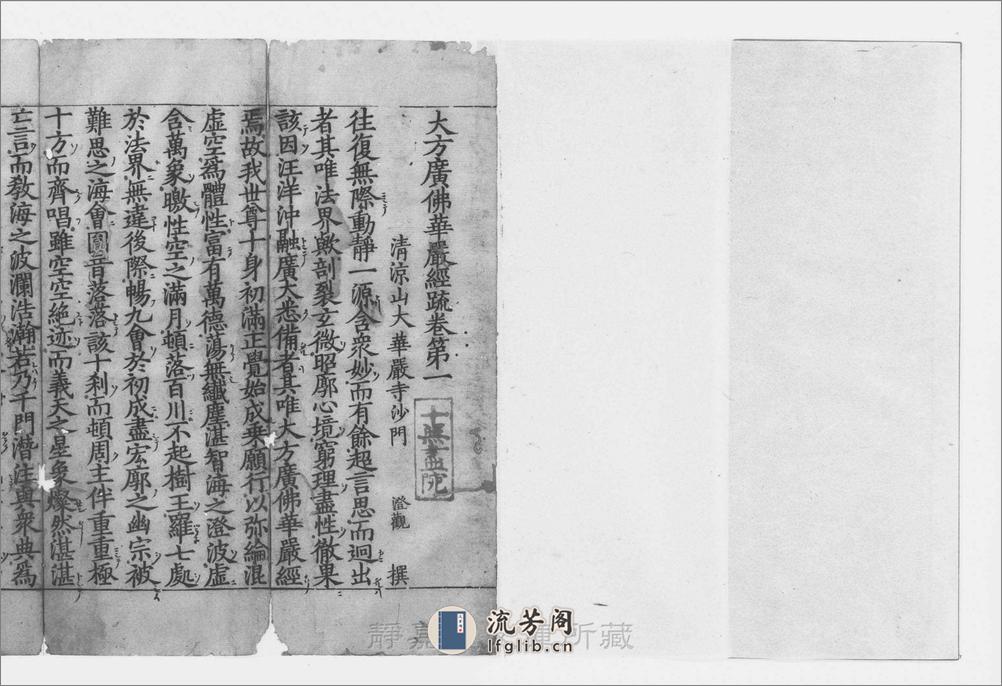 大方廣佛華嚴經疏卷第一
十無盡院
清涼山大華嚴寺沙門 澄觀 撰
往復無際動靜一源含衆妙而有餘超言思而迥出
者其唯法界歟剖裂玄微昭廓心境窮理盡性徹果
該因汪洋沖融廣大悉備者其唯大方廣佛華嚴經
焉故我世尊十身初滿正覺始成乗願行以弥綸混
虛空爲體性富有萬德蕩無纖塵湛智海之澄波虛
含萬象皦性空之滿月頓落百川不起樹王羅七處
於法界無違後際暢九會於初成盡宏廓之幽宗被
難思之海會圓音落落該十刹而頓周主伴重重極
十方而齊唱雖空空絶迹而義天之星象燦然湛湛
亡言而教海之波瀾浩瀚若乃千門潛注與衆典爲
靜嘉 所藏
流芳阁
lfglib.cn